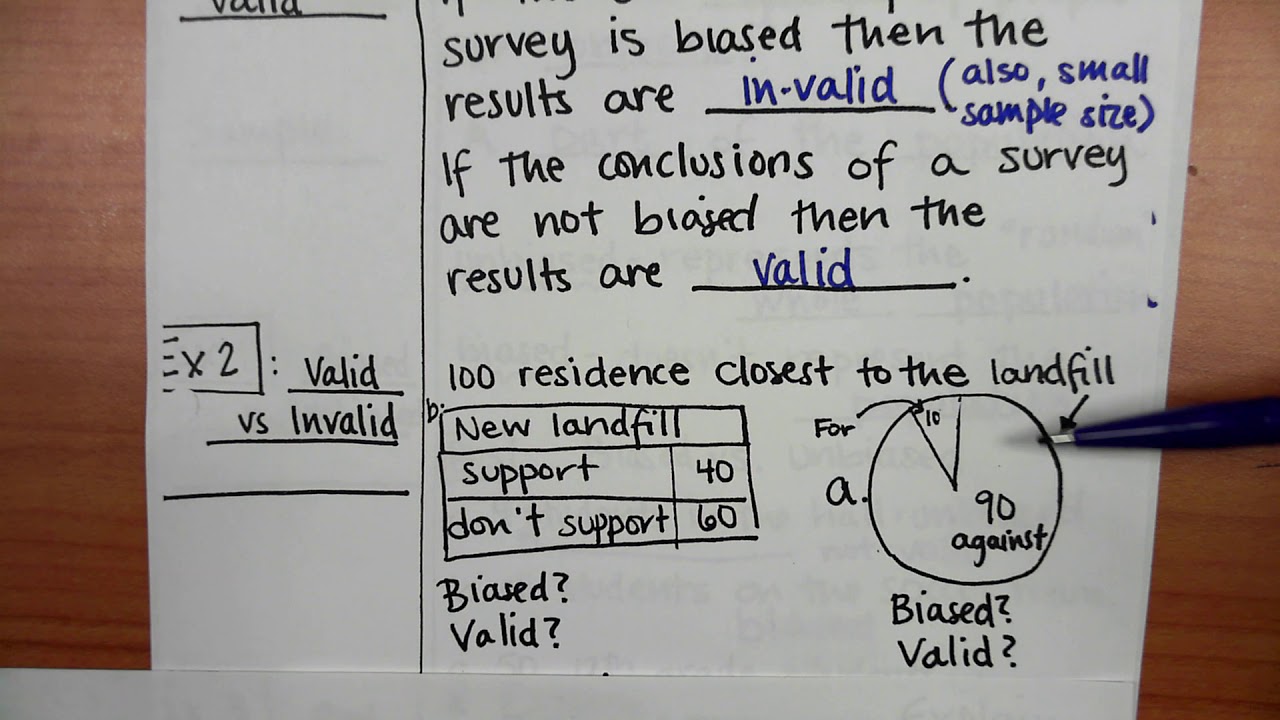 valid
survey is biased then the
results are in-valid (also, small
sample size)
If the conclusions of a survey
are not biased then the
results are valid.
Ex 2: Valid
vs Invalid
100 residence closest to the landfill
b.
New landfill
support 40
don't support 60
Biased?
Valid?
For
10
a.
90
against
Biased?
Valid?